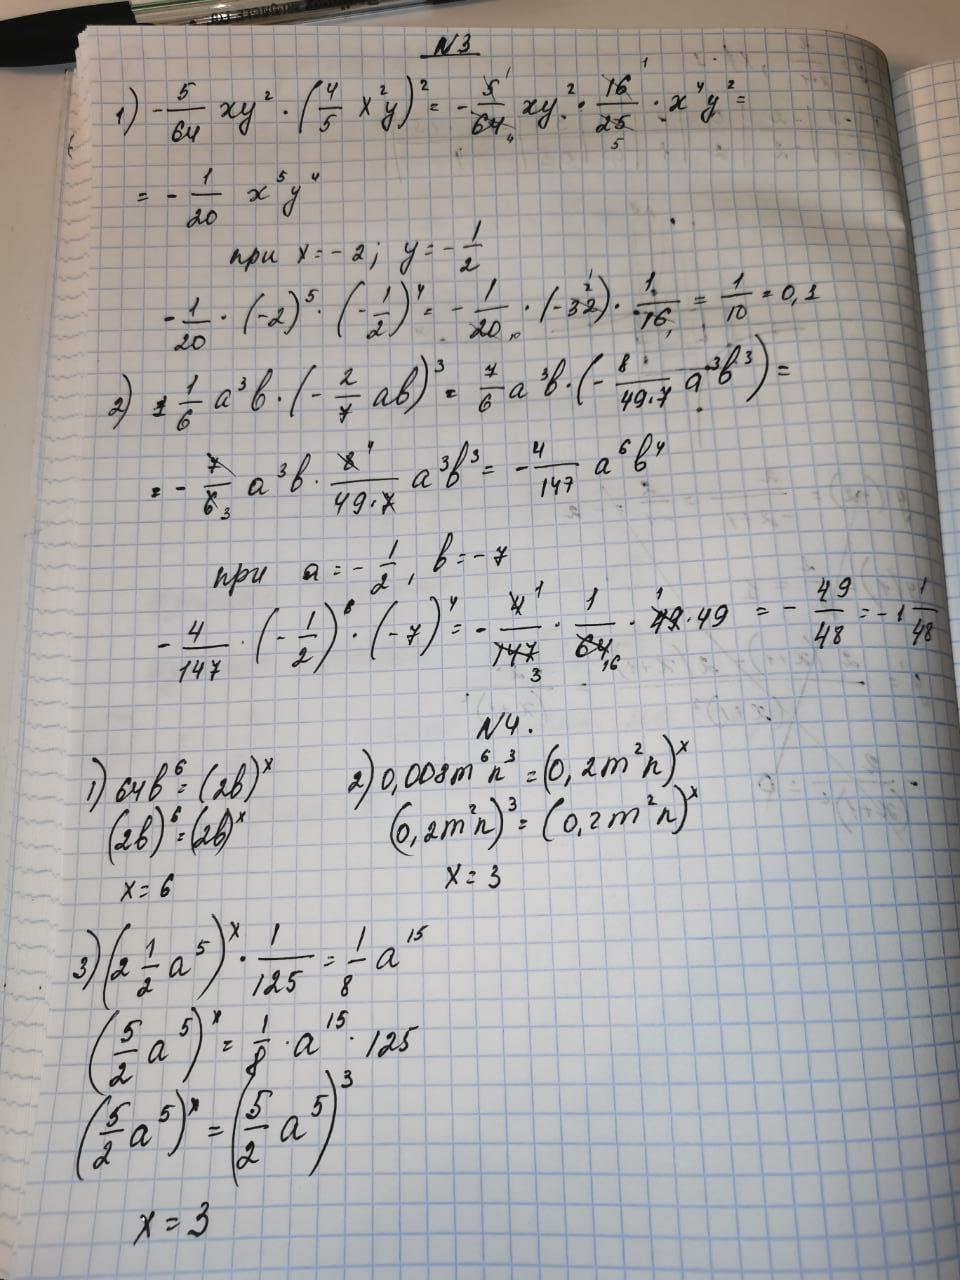 N3
1) -5/64 xy² · (4/5 x²y)² = -5/64 xy² · 16/25 · x⁴y² =
= -1/20 x⁵y⁴
при x = -2; y = -1/2
-1/20 · (-2)⁵ · (-1/2)⁴ = -1/20 · (-32) · 1/16 = 1/10 = 0,1
2) 1 1/6 a³b · (-2/7 ab)³ = 7/6 a³b · (-8/49·7 a³b³) =
= -7/6 a³b · 8/49·7 a³b³ = -4/147 a⁶b⁴
при a = -1/2, b = -7
-4/147 · (-1/2)⁶ · (-7)⁴ = -4/147 · 1/64 · 49·49 = -49/48 = -1 1/48
N4.
1) 64b⁶ = (2b)ˣ
(2b)⁶ = (2b)ˣ
x = 6
2) 0,008m⁶n³ = (0,2m²n)ˣ
(0,2m²n)³ = (0,2m²n)ˣ
x = 3
3) (2 1/2 a⁵)ˣ · 1/125 = 1/8 a¹⁵
(5/2 a⁵)ˣ = 1/8 · a¹⁵ · 125
(5/2 a⁵)ˣ = (5/2 a⁵)³
x = 3